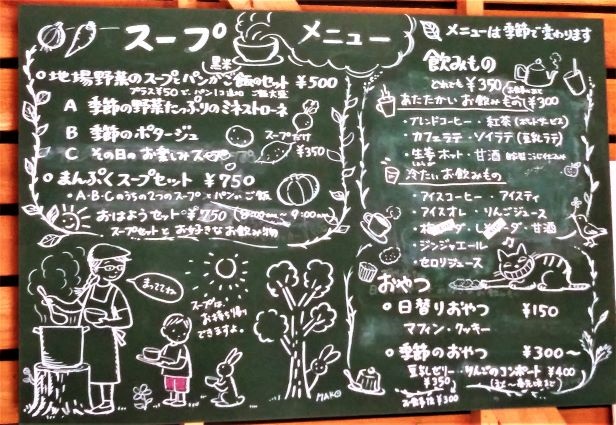 スープ メニュー
メニューは季節で変わります
○地場野菜のスープとパンかご飯のセット ¥500
黒米
プラス¥50で、パン1コ追加 ご飯大盛
A 季節の野菜たっぷりのミネストローネ
B 季節のポタージュ
C その日のお楽しみスープ
スープだけ
¥350
○まんぷくスープセット ¥750
・A・B・Cのうちの2つのスープとパンorご飯
おはようセット・¥750 (8:00am〜9:00am)
スープセットとお好きなお飲み物
まっててね
スープは、
お持ち帰り
できますよ。
MAKO
飲みもの
どれでも ¥350
あたたかいお飲みもの ¥300
・ブレンドコーヒー・紅茶
・カフェラテ・ソイラテ(豆乳ラテ)
・生姜ホット・甘酒
冷たいお飲みもの
・アイスコーヒー・アイスティ
・アイスオレ・りんごジュース
・甘酒
・ジンジャエール
・セロリジュース
おやつ
○日替りおやつ ¥150
マフィン・クッキー
○季節のおやつ ¥300〜
豆乳ゼリー・りんごのコンポート ¥400
¥350
お食事後 ¥300